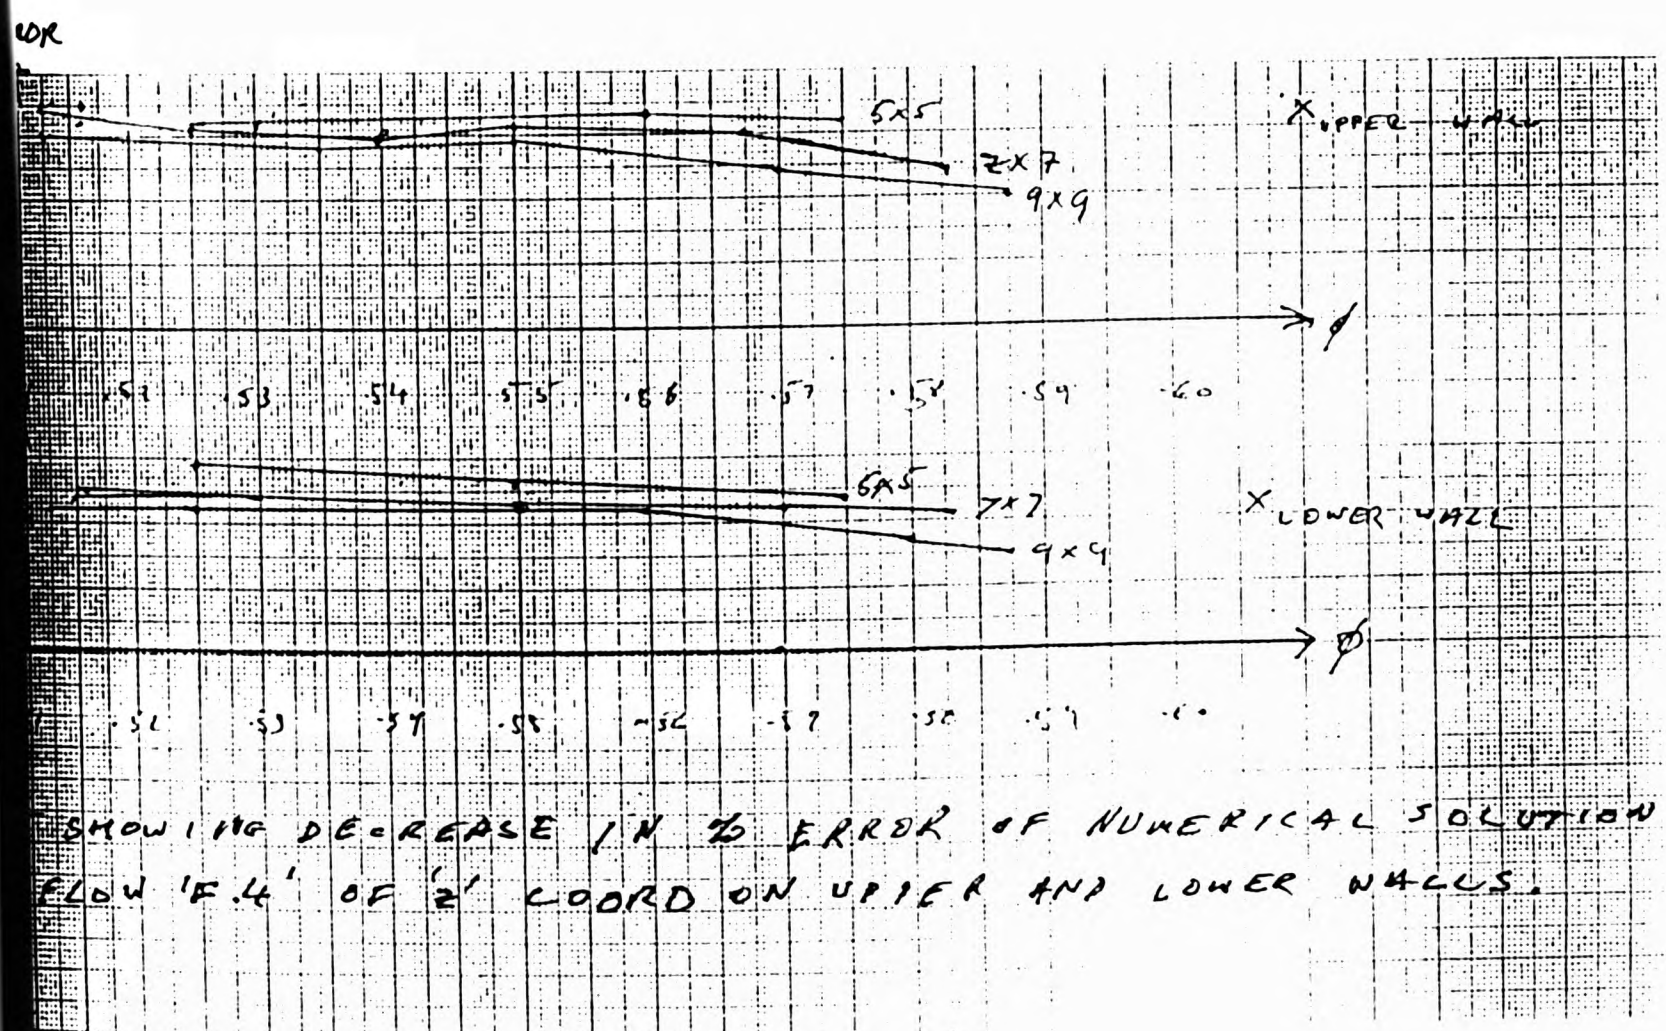 5x5
X UPPER WALL
7x7
9x9
φ
.52 .53 .54 .55 .56 .57 .58 .59 .60
5x5
7x7
X LOWER WALL
9x9
φ
.52 .53 .54 .55 .56 .57 .58 .59 .60
SHOWING DECREASE IN % ERROR OF NUMERICAL SOLUTION
FLOW 'F.4' OF 'z' COORD ON UPPER AND LOWER WALLS.